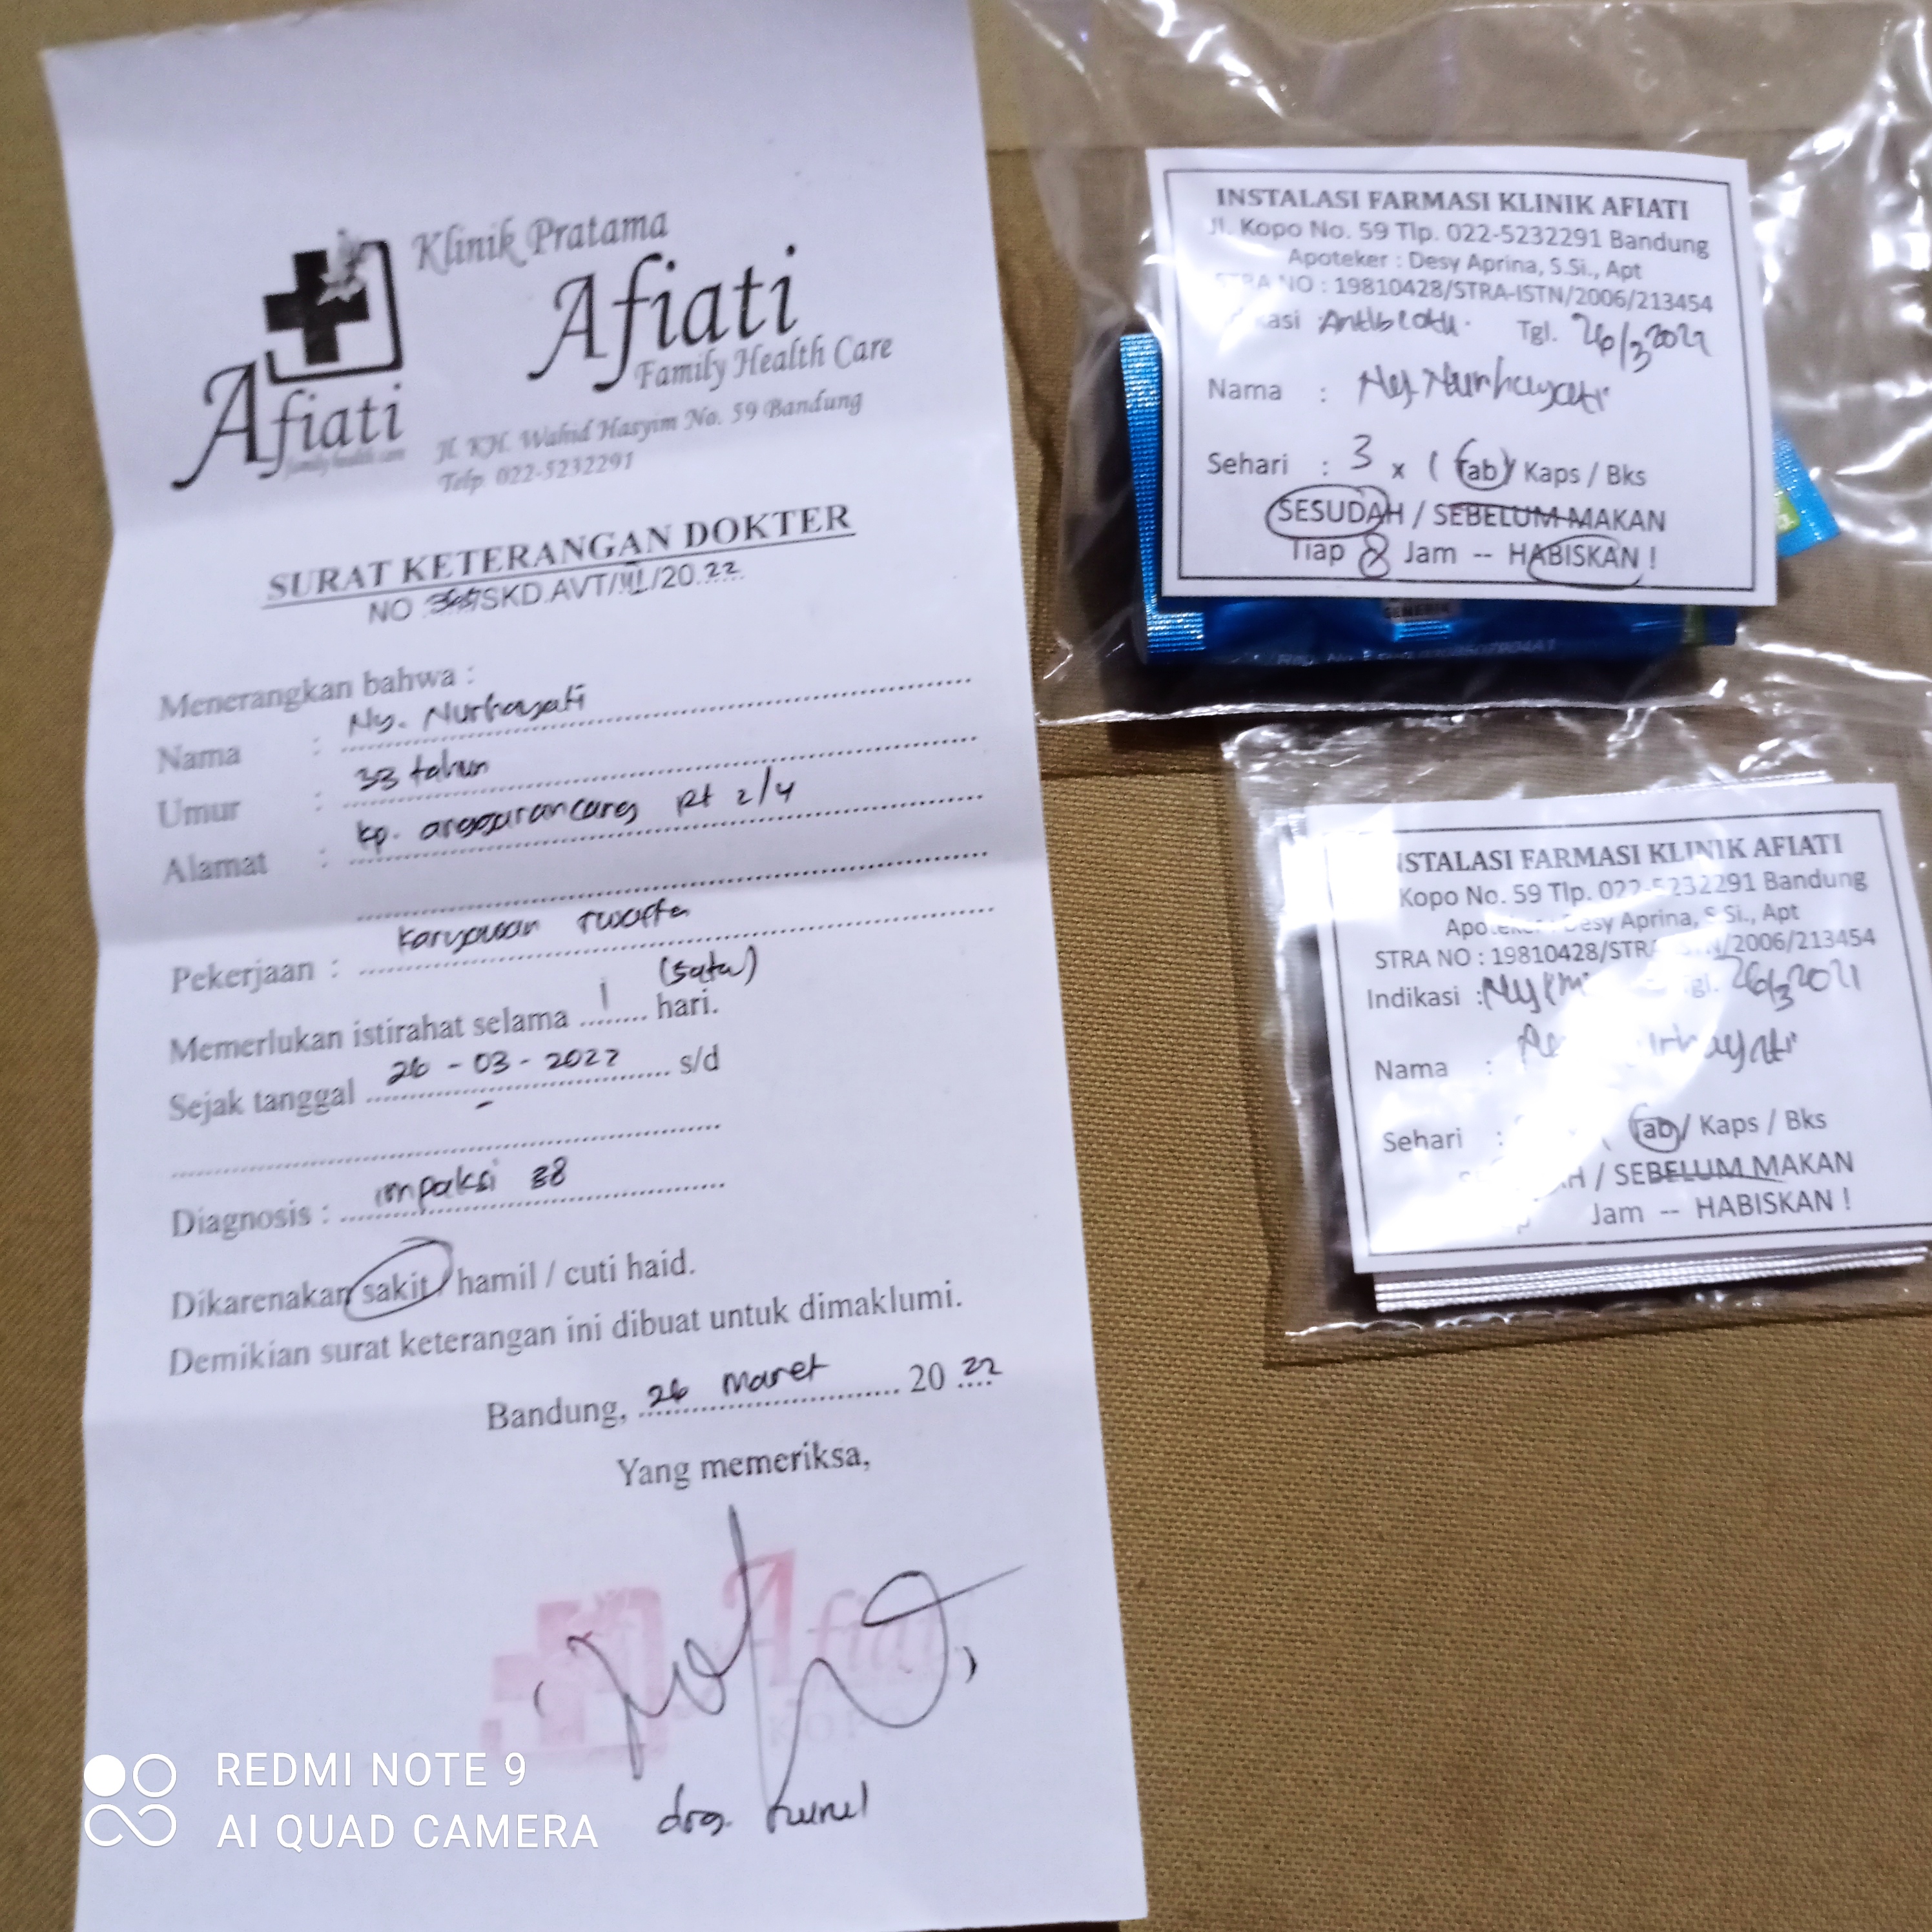 Klinik Pratama
Afiati
Family Health Care
Afiati
family health care
Jl. KH. Wahid Hasyim No. 59 Bandung
Telp. 022-5232291
SURAT KETERANGAN DOKTER
NO /SKD.AVT/III/20.22
Menerangkan bahwa :
Nama : Ny. Nurhayati
Umur : 33 tahun
Alamat : kp. rt 2/4
Pekerjaan : karyawan swasta
Memerlukan istirahat selama 1 (satu) hari.
Sejak tanggal 26 - 03 - 2022 s/d
-
Diagnosis : impaksi 38
Dikarenakan sakit / hamil / cuti haid.
Demikian surat keterangan ini dibuat untuk dimaklumi.
Bandung, 26 Maret 20 22
Yang memeriksa,
Afiati
KOPO
drg.
REDMI NOTE 9
AI QUAD CAMERA
INSTALASI FARMASI KLINIK AFIATI
Jl. Kopo No. 59 Tlp. 022-5232291 Bandung
Apoteker : Desy Aprina, S.Si., Apt
STRA NO : 19810428/STRA-ISTN/2006/213454
Indikasi : Antibiotik Tgl. 26/3 2021
Nama : Ny. Nurhayati
Sehari : 3 x ( Tab / Kaps / Bks
SESUDAH / SEBELUM MAKAN
Tiap 8 Jam -- HABISKAN !
GENERIK
Reg. No.
INSTALASI FARMASI KLINIK AFIATI
Kopo No. 59 Tlp. 022-5232291 Bandung
Apoteker : Desy Aprina, S.Si., Apt
STRA NO : 19810428/STRA-ISTN/2006/213454
Indikasi : Tgl. 26/3 2021
Nama : Nurhayati
Sehari : ( Tab / Kaps / Bks
/ SEBELUM MAKAN
Jam -- HABISKAN !